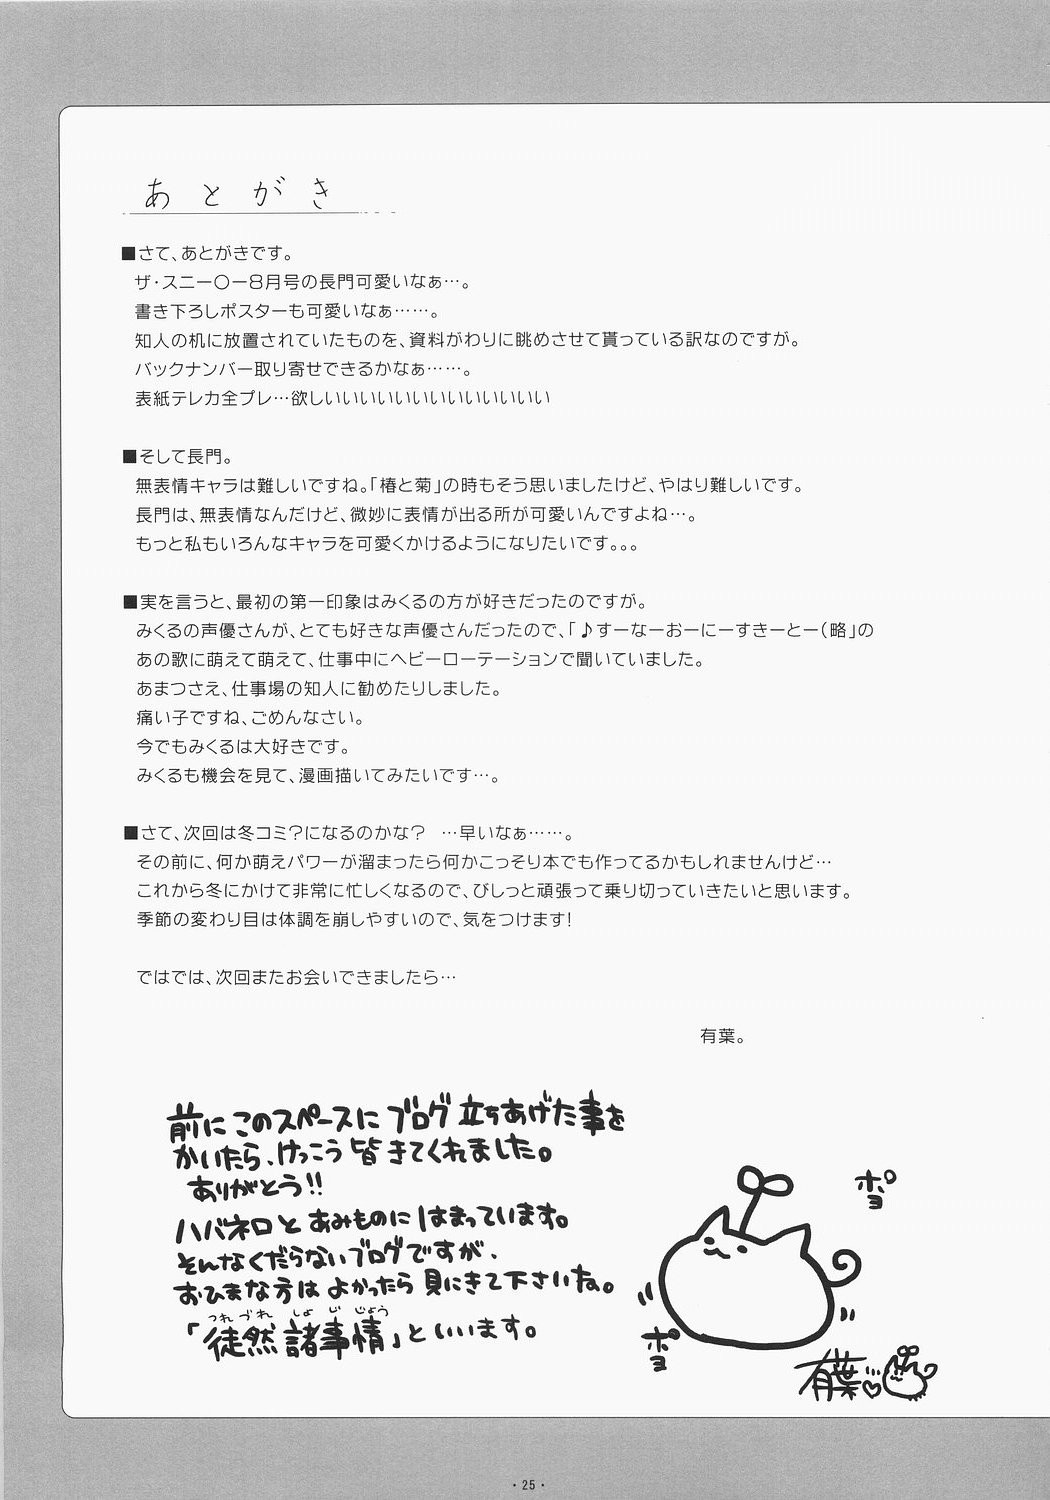 あとがき
■さて、あとがきです。
ザ・スニー○ー8月号の長門可愛いなぁ…。
書き下ろしポスターも可愛いなぁ……。
知人の机に放置されていたものを、資料がわりに眺めさせて貰っている訳なのですが。
バックナンバー取り寄せできるかなぁ……。
表紙テレカ全プレ…欲しいいいいいいいいいいいいい
■そして長門。
無表情キャラは難しいですね。「椿と菊」の時もそう思いましたけど、やはり難しいです。
長門は、無表情なんだけど、微妙に表情が出る所が可愛いんですよね…。
もっと私もいろんなキャラを可愛くかけるようになりたいです。。。
■実を言うと、最初の第一印象はみくるの方が好きだったのですが。
みくるの声優さんが、とても好きな声優さんだったので、「♪すーなーおーにーすきーとー（略」の
あの歌に萌えて萌えて、仕事中にヘビーローテーションで聞いていました。
あまつさえ、仕事場の知人に勧めたりしました。
痛い子ですね、ごめんなさい。
今でもみくるは大好きです。
みくるも機会を見て、漫画描いてみたいです…。
■さて、次回は冬コミ？になるのかな？　…早いなぁ……。
その前に、何か萌えパワーが溜まったら何かこっそり本でも作ってるかもしれませんけど…
これから冬にかけて非常に忙しくなるので、びしっと頑張って乗り切っていきたいと思います。
季節の変わり目は体調を崩しやすいので、気をつけます！
ではでは、次回またお会いできましたら…
有葉。
前にこのスペースにブログ立ちあげた事を
かいたら、けっこう皆きてくれました。
ありがとう!!
ハバネロとあみものにはまっています。
そんなくだらないブログですが、
おひまな方はよかったら見にきて下さいね。
つれづれ しょじじょう
「徒然諸事情」といいます。
ポヨ
ポヨ
有葉
・25・